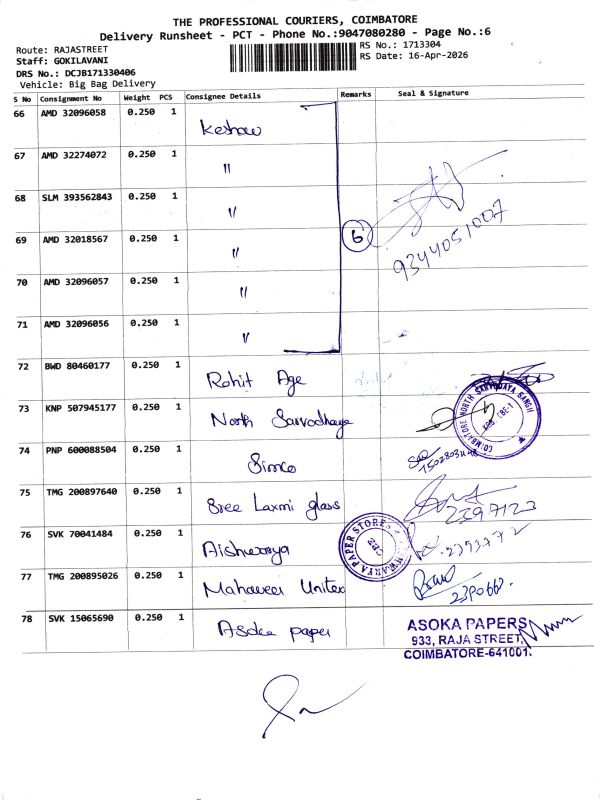 THE PROFESSIONAL COURIERS, COIMBATORE
Delivery Runsheet - PCT - Phone No.:9047080280 - Page No.:6
Route: RAJASTREET
Staff: GOKILAVANI
DRS No.: DCJB171330406
Vehicle: Big Bag Delivery
RS No.: 1713304
RS Date: 16-Apr-2026
S No Consignment No Weight PCS Consignee Details Remarks Seal & Signature
66 AMD 32096058 0.250 1 Keshav
67 AMD 32274072 0.250 1 "
68 SLM 393562843 0.250 1 "
69 AMD 32018567 0.250 1 " 6 9344051007
70 AMD 32096057 0.250 1 "
71 AMD 32096056 0.250 1 "
72 BWD 80460177 0.250 1 Rohit Age
73 KNP 507945177 0.250 1 North Sarvodhaya
COIMBATORE NORTH SARVODAYA SANGH
74 PNP 600088504 0.250 1 Simco
75 TMG 200897640 0.250 1 Sree Laxmi glass 2397123
76 SVK 70041484 0.250 1 Aishwarya 2393772
PAPER STORES
CBE
77 TMG 200895026 0.250 1 Mahaveer Unitex 2390663.
78 SVK 15065690 0.250 1 Asoka paper
ASOKA PAPERS
933, RAJA STREET,
COIMBATORE-641001.